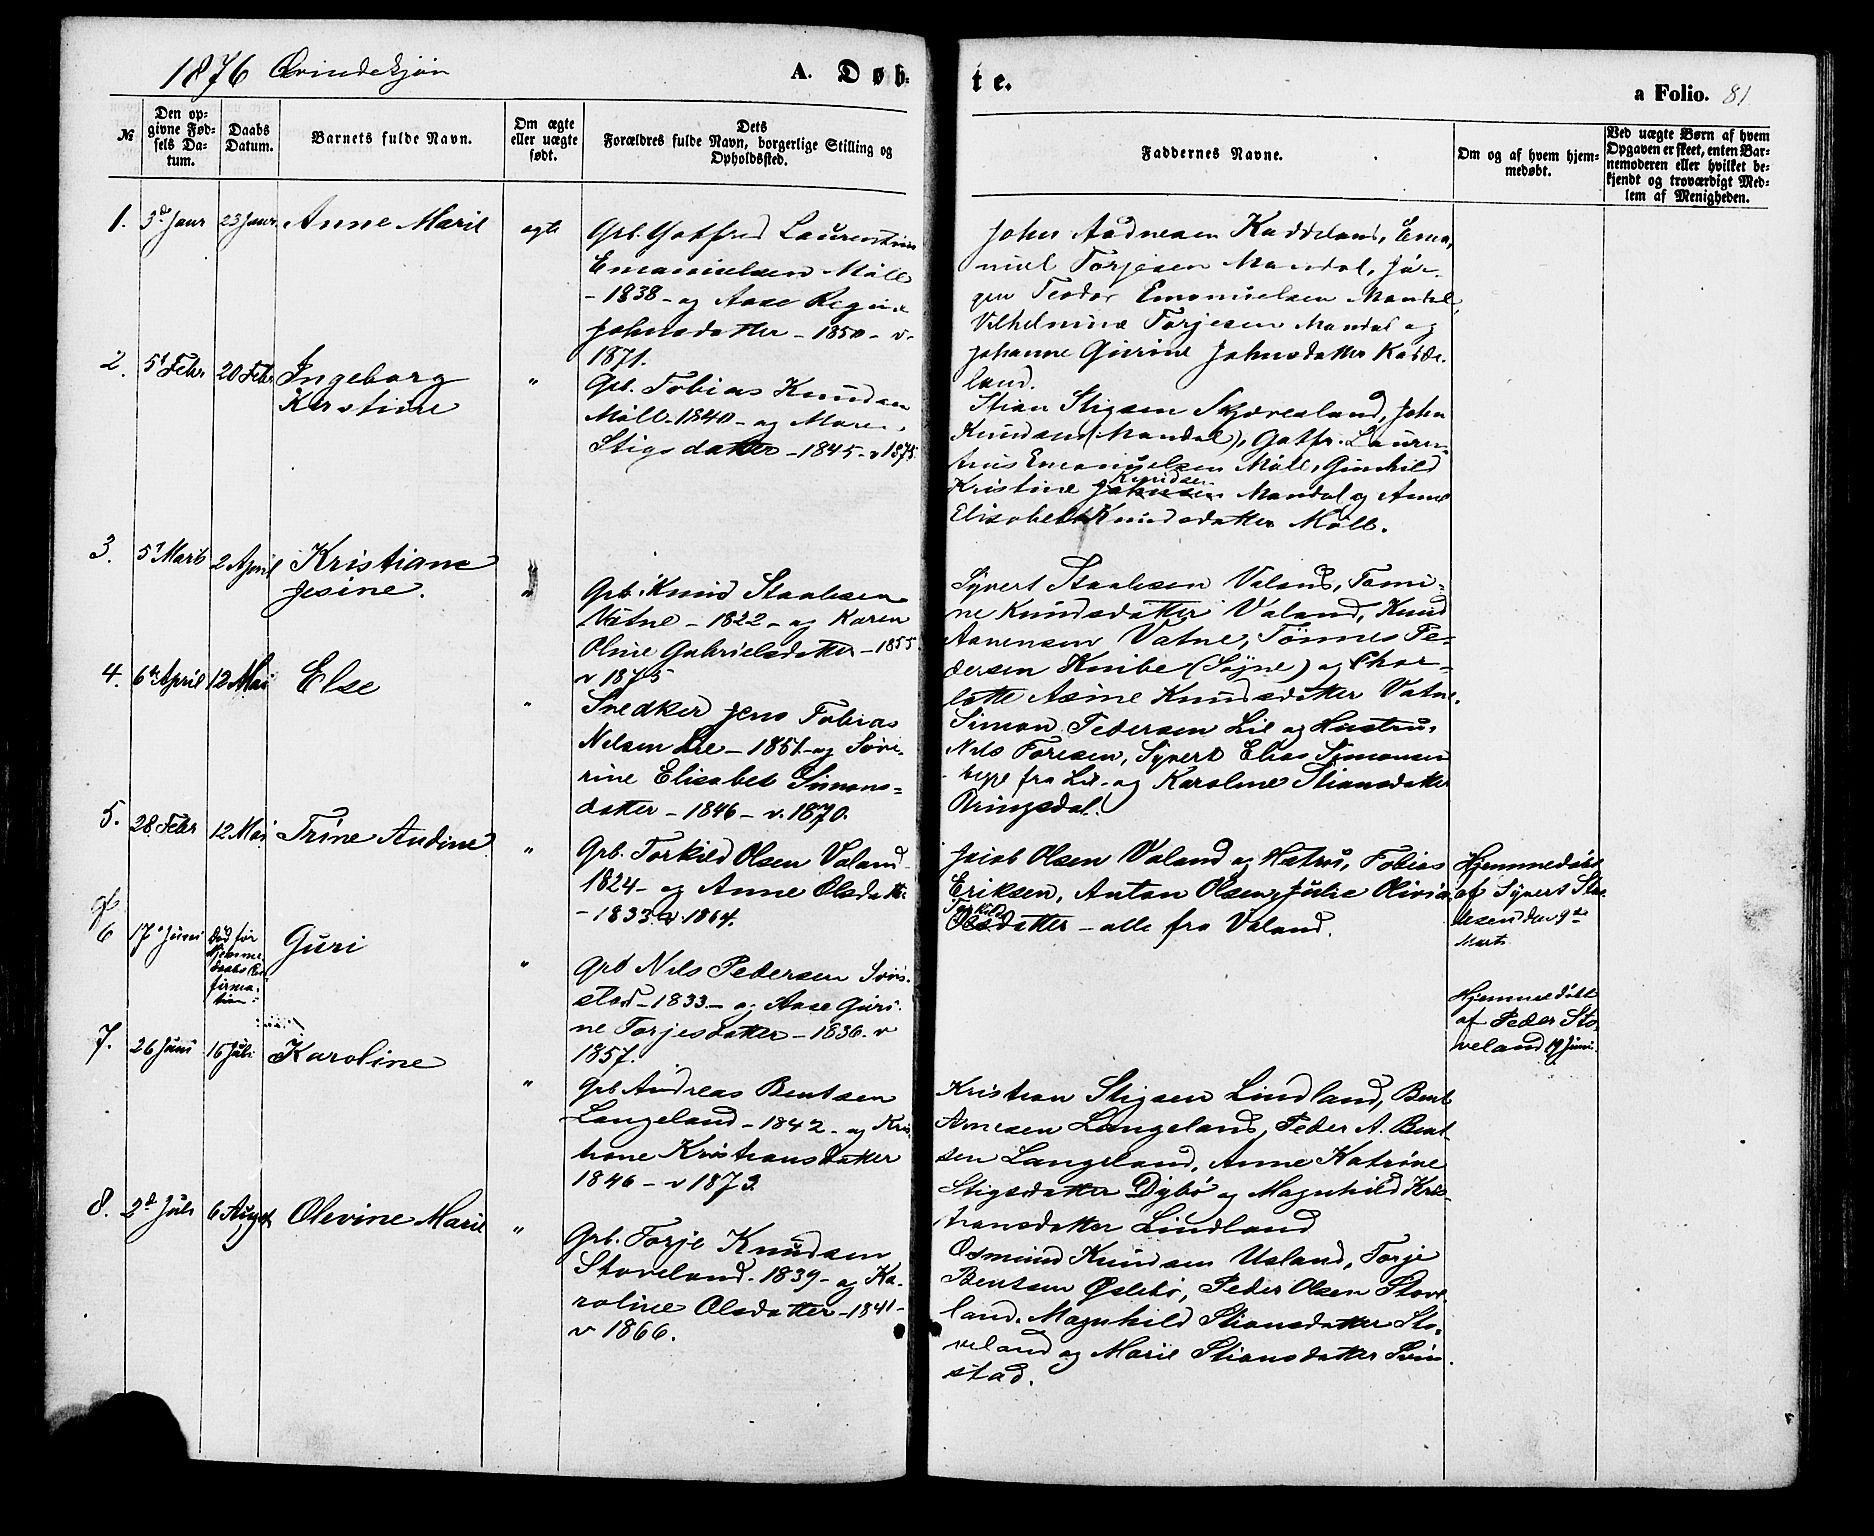 1876 Qvindekjön
A. Døb-
te.
a Folio. 81
№
Den op-
givne Fød-
sels Da-
tum.
Daabs
Datum.
Barnets fulde Navn.
Om ægte
eller uægte
født.
Dets
Forældres fulde Navn, borgerlige Stilling og
Opholdssted.
Faddernes Navne.
Om og af hvem hjem-
medøbt.
Ved uægte Børn af hvem
Opgaven er skeet, enten Bar-
nemoderen eller hvilket be-
kjendt og troværdigt Med-
lem af Menigheden.
1. 3d Janr 23 Janr. Anne Marie ægte
Grb. Gotfred Laurentius
Emanuelsen Möll
- 1838 - og Aase Regine
Johnsdatter - 1850 - v.
1871.
John Aadnesen Kaddeland, Ema-
nuel Torjesen Mandal, Jör-
gen Teodor Emanuelsen Mandal,
Vilhelmine Torjesen Mandal og
Johanne Gurine Johnsdatter Kadde-
land.
2. 5t Febr 20 Febr Ingeborg
Kirstine "
Grb. Tobias Knudsen
Möll - 1840 - og Maren
Stigsdatter - 1845 - v 1875.
Stian Stigsen Skjævesland, John
Knudsen (Mandal), Gotfr. Lauren-
tius Emanuelsen Möll, Gunhild
Kristine Johnsen Knudsen Mandal og Anne
Elisabeth Knudsdatter Möll.
3. 5t Marts 2 April Kristiane
Jesine. "
Grb. Knud Staalesen
Vatne - 1822 - og Karen
Oline Gabrielsdatter - 1855
v 1875
Syvert Staalesen Valand, Tomi-
ne Knudsdatter Valand, Knud
Aanensen Vatne, Tönnes Pe-
dersen Knibe (Söyne) og Char-
lotte Asine Knudsdatter Vatne.
4. 6te April 12 Mai Else "
Snedker Jens Tobias
Nilsen Lie - 1851 - og Seve-
rine Elisabet Simons-
datter - 1846 - v. 1870.
Simon Pedersen Lie og Hustru,
Nils Toresen, Syvert Elias Simonsen
- begge fra Lie - og Karoline Stiansdatter
Bringsdal.
5. 28 Febr 12 Mai Trine Andine "
Grb. Torkild Olsen Valand
1824 - og Anne Olsdatter
- 1833 - v. 1864.
Jacob Olsen Valand og Hustru, Tobias
Eriksen, Anton Olsen, Julie Olivia
Torkilds
Olsdatter - alle fra Valand.
Hjemmedöbt
af Syvert Staa-
lesen den 9de
Marts
6 17de Juni Död för
Hjemme-
daabs Con-
firma-
tion. Guri "
Grb Nils Pedersen Svin-
stad - 1833 - og Aase Guri-
ne Torjesdatter - 1836 - v
1857.
Hjemmedöbt
af Peder Sto-
veland 19 Juni.
7. 26 Juni 16 Juli Karoline "
Grb Andreas Bentsen
Langeland - 1842 - og Kris
tiane Kristiansdatter
1846 - v 1873.
Kristian Stigsen Lindland, Bent
Arnesen Langeland, Peder A. Bent-
sen Langeland, Anne Katrine
Stigsdatter Dybö og Magnhild Kris-
tiansdatter Lindland
8. 2d Juli 6 August Olevine Marie "
Grb. Torje Knudsen
Stoveland - 1839 - og Ka-
roline Olsdatter - 1841 -
v 1866.
Osmund Knudsen Usland, Torje
Bentsen Öslebö, Peder Olsen Stove-
land, Magnhild Stiansdatter Sto-
veland og Marie Stiansdatter Svin
stad.